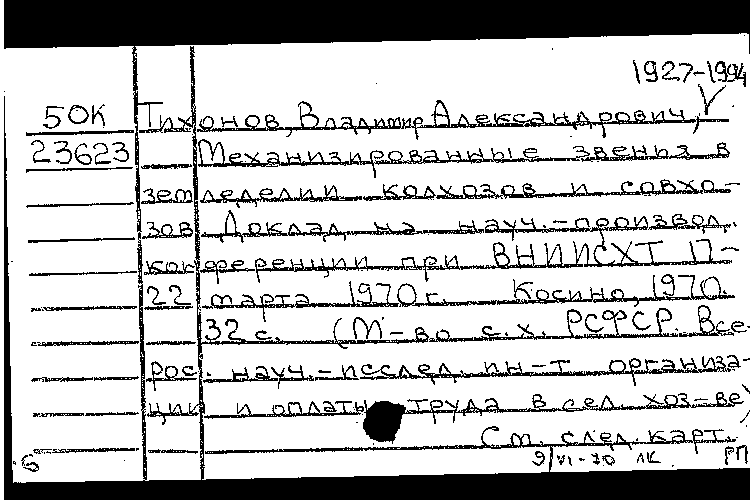 1927-1994
50К Тихонов, Владимир Александрович,
23623 Механизированные звенья в
земледелии колхозов и совхо-
зов. Доклад на науч.-производ.
конференции при ВНИИСХТ 17-
22 марта 1970г. Косино, 1970.
32 с. (М-во с.х. РСФСР. Все-
рос. науч.-исслед. ин-т организа-
ции и оплаты труда в сел. хоз-ве)
См. след. карт.
6 9/VI-70 ЛК РП